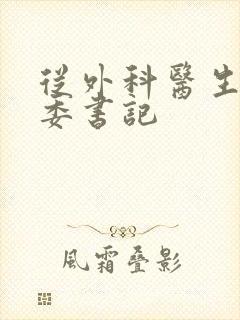 從外科醫生
委書記
風霜叠影